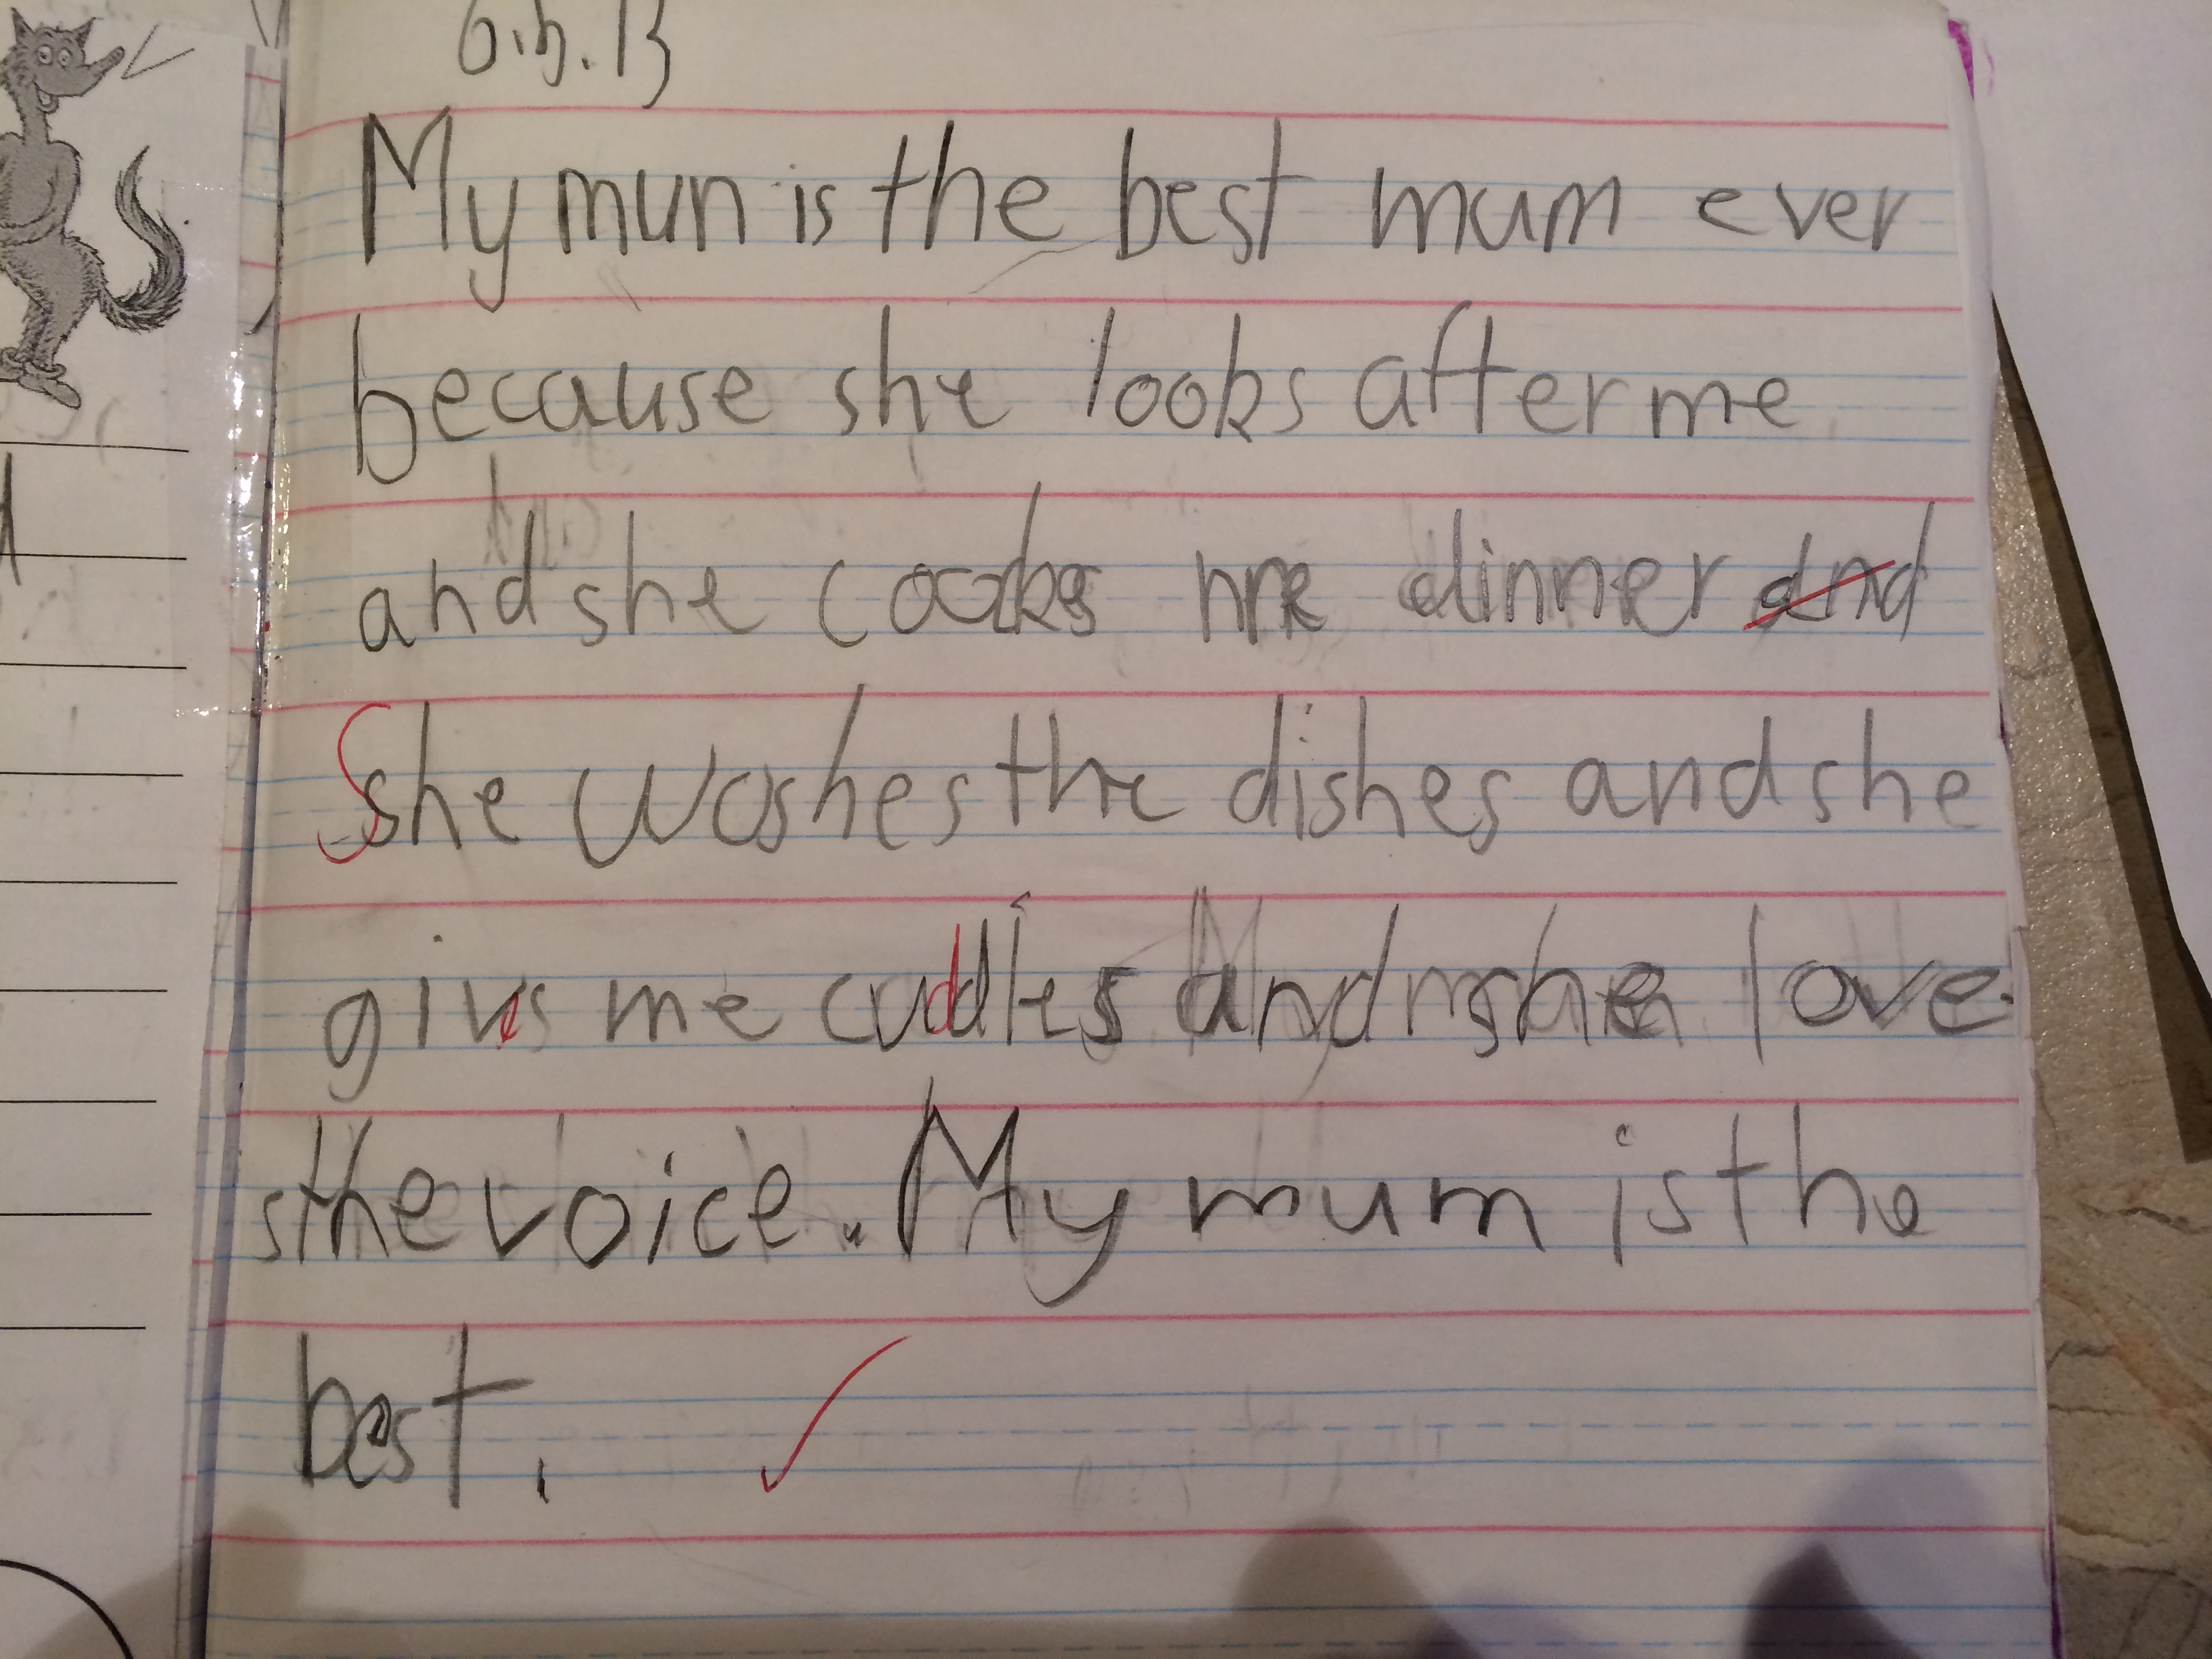 6.5.13
My mun is the best mum ever
because she looks after me
and she cooks me dinner and
She washes the dishes and she
gives me cuddles and she love
s the voice. My mum is the
best.